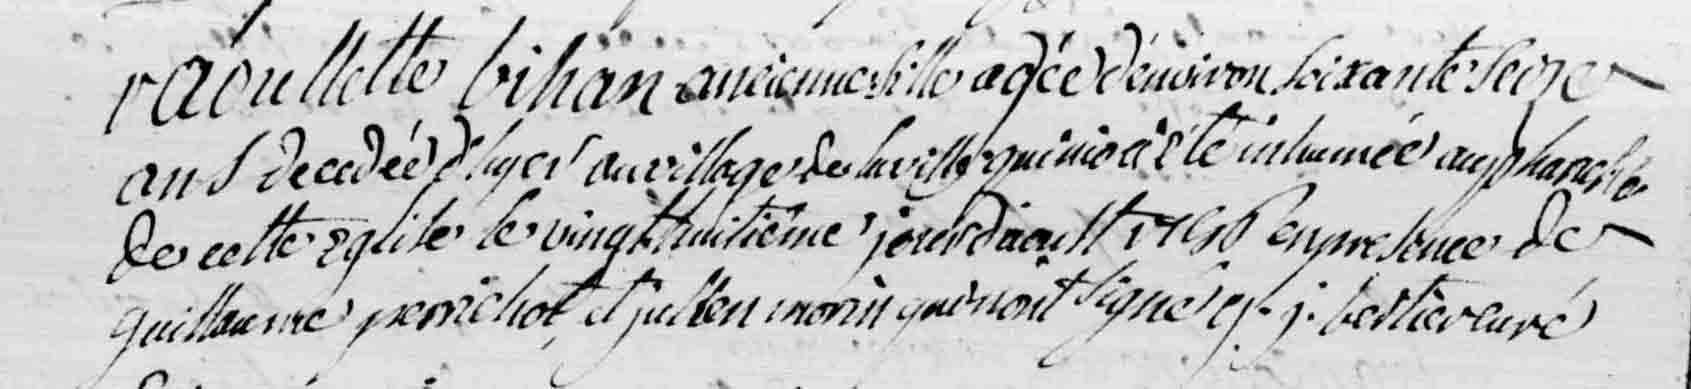 raoullette bihan ancienne fille agée d'environ soixante seize
ans decedée d'hyer au village de la ville quinio a été inhumée au
de cette eglise le vingt huitiéme jour d'aoust en presence de
guillaume perrichot, et jullien morin qui n'ont signé j. bertier curé